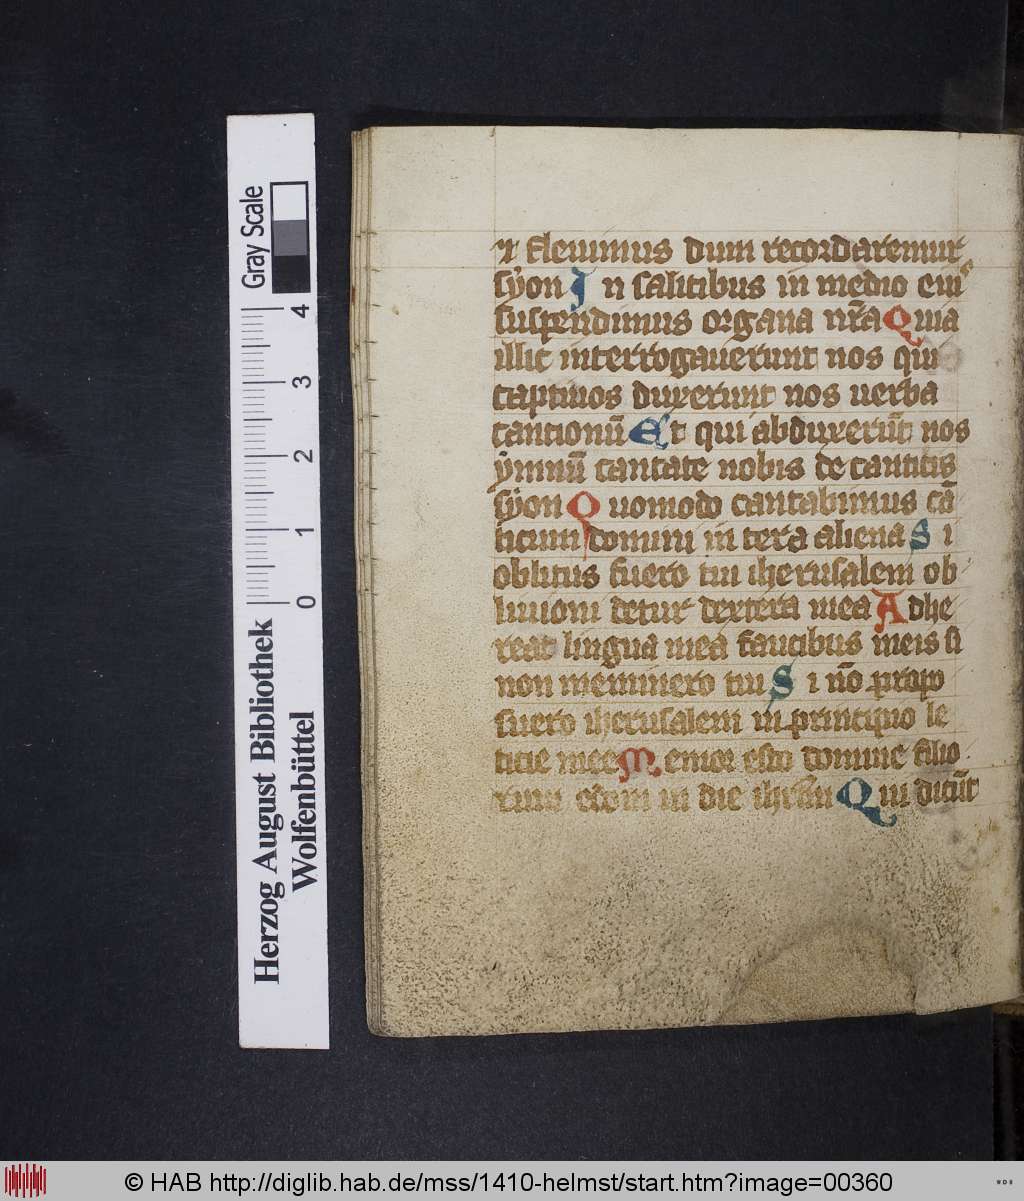 ⁊ fleuimus dum recordaremur
syon In salicibus in medio eius
suspendimus organa nr̄a Quia
illic interrogauerunt nos qui
captiuos duxerunt nos uerba
cantionū Et qui abduxerūt nos
ymnū cantate nobis de canticis
syon Quomodo cantabimus cā
ticum domini in terra aliena Si
oblitus fuero tui iherusalem ob
liuioni detur dextera mea Adhe
reat lingua mea faucibus meis si
non meminero tui Si nō propo
suero iherusalem in principio le
ticie mee Memor esto domine filio
rum edom in die ihrl̄m Qui dicūt
Gray Scale
4
3
2
1
0
Herzog August Bibliothek
Wolfenbüttel
© HAB http://diglib.hab.de/mss/1410-helmst/start.htm?image=00360